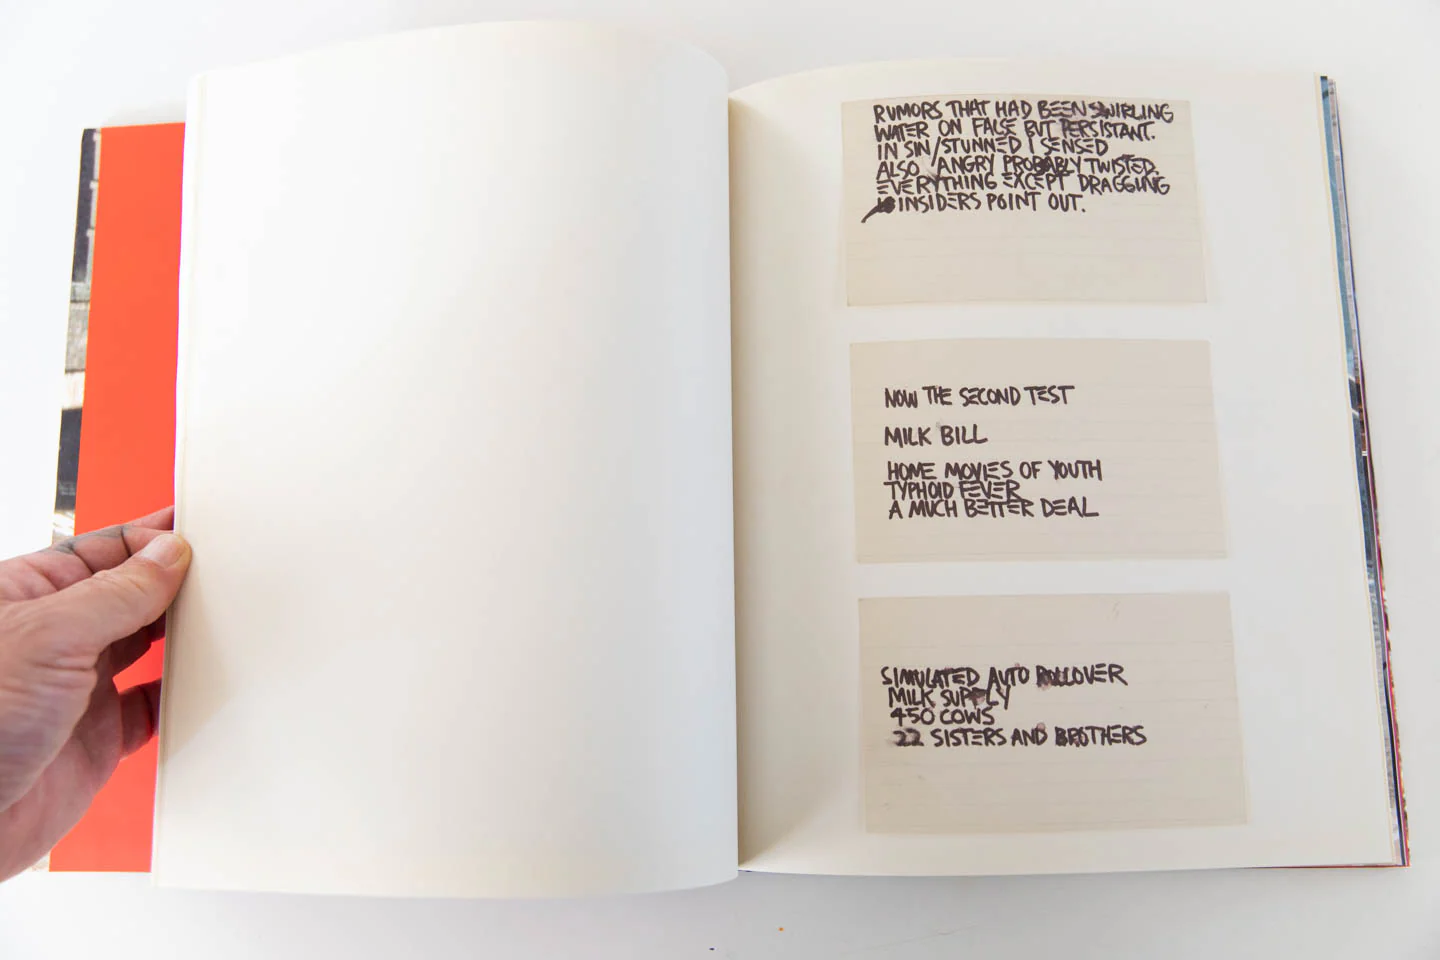 RUMORS THAT HAD BEEN SWIRLING
WATER ON FALSE BUT PERSISTANT.
IN SIN/STUNNED I SENSED
ALSO ANGRY PROBABLY TWISTED.
EVERYTHING EXCEPT DRAGGING
INSIDERS POINT OUT.
NOW THE SECOND TEST
MILK BILL
HOME MOVIES OF YOUTH
TYPHOID FEVER
A MUCH BETTER DEAL
SIMULATED AUTO ROLLOVER
MILK SUPPLY
450 COWS
22 SISTERS AND BROTHERS